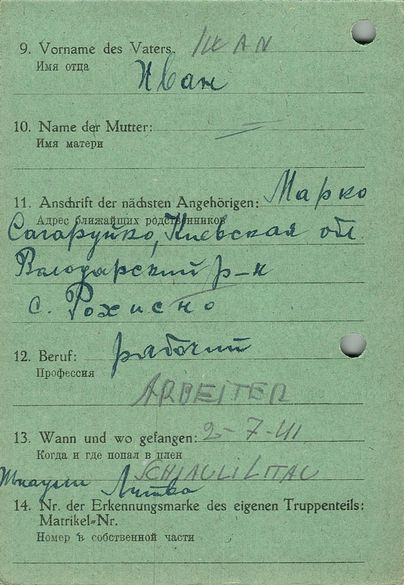 9. Vorname des Vaters. IWAN
Имя отца
Иван
10. Name der Mutter: —
Имя матери
11. Anschrift der nächsten Angehörigen: Марко
Адрес ближайших родственников
Сагаруйко, Киевская обл.
Володарский р-н
с. Рохисно
12. Beruf: рабочий
Профессия
ARBEITER
13. Wann und wo gefangen: 2-7-41
Когда и где попал в плен
SCHIAULI LITAU
Шяули Литва
14. Nr. der Erkennungsmarke des eigenen Truppenteils:
Matrikel-Nr.
Номер в собственной части